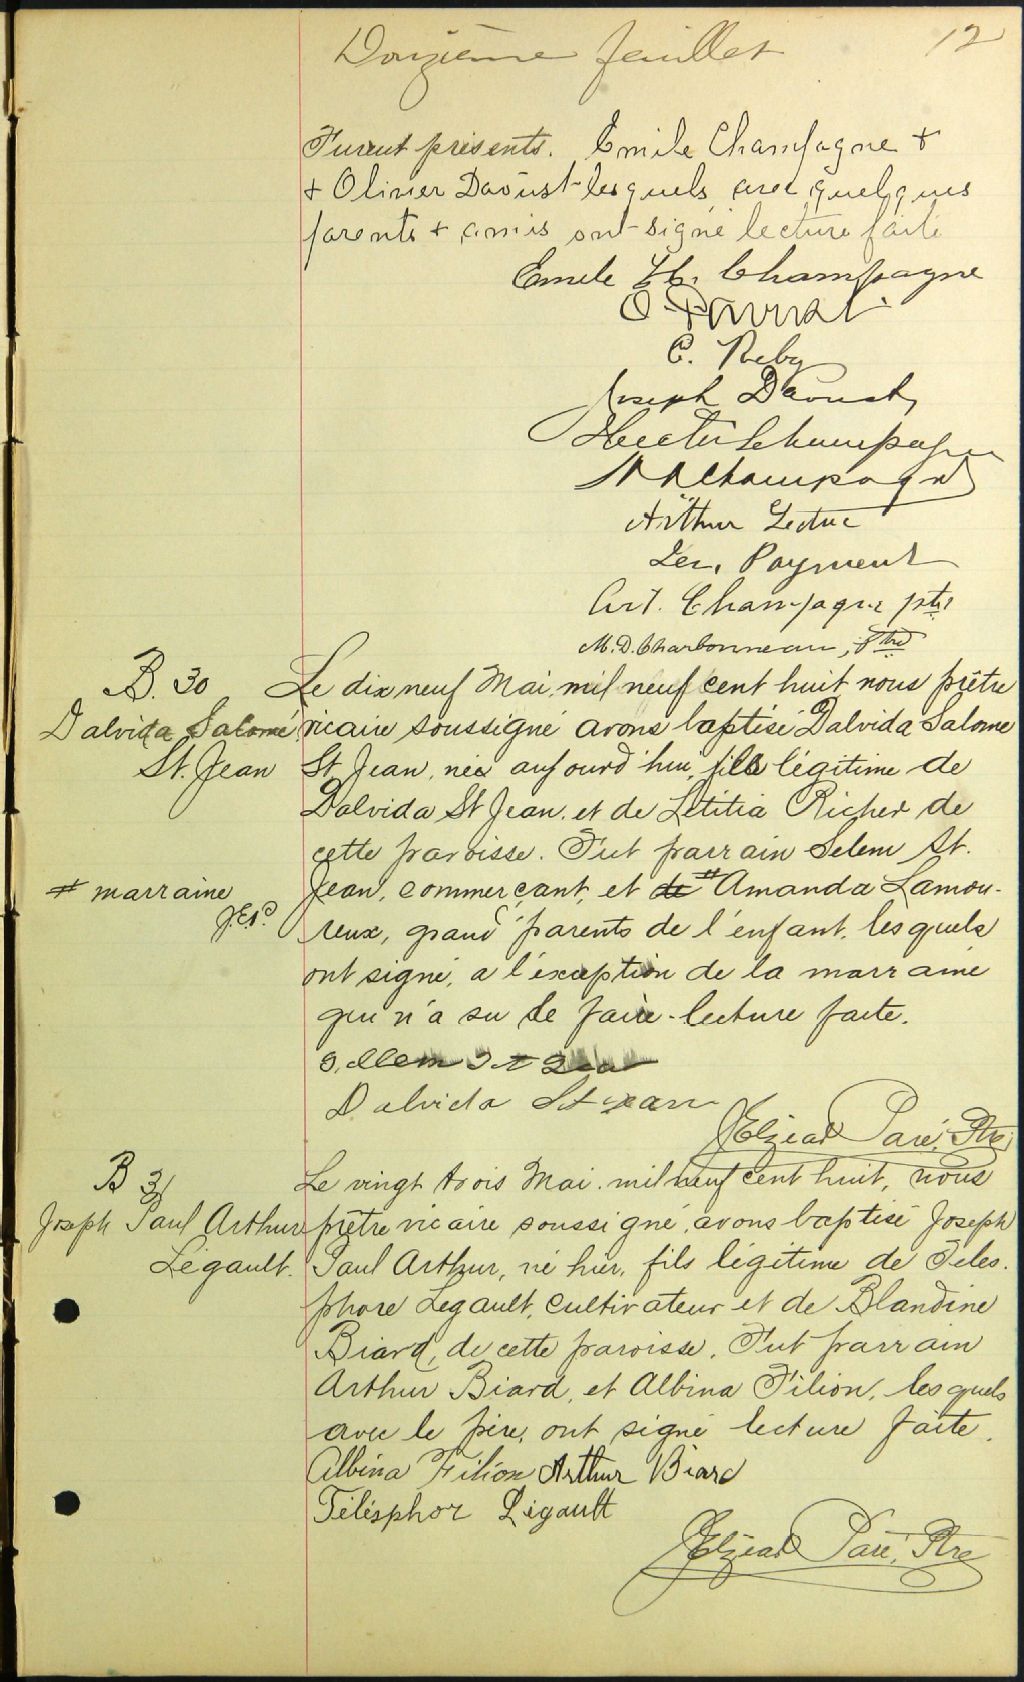 Douzième feuillet
12
Furent présents. Emile Champagne +
+ Olivier Daoust lesquels avec quelques
parents + amis ont signé lecture faite
Emile H. Champagne
O. Daoust
C. Reby
Joseph Daoust
Hector Champagne
Champagne
Arthur Leduc
Payment
Art. Champagne ptre
M.D. Charbonneau, Ptre
B. 30
Dalvida Salomé
St. Jean
Le dix neuf Mai mil neuf cent huit nous prêtre
vicaire soussigné avons baptisé Dalvida Salome
St Jean, née aujourd'hui, fille légitime de
Dalvida St Jean, et de Létitia Richer de
cette paroisse. Fut parrain Selem St.
Jean, commerçant, et de # Amanda Lamou-
# marraine
J.E.P.
reux, grand parents de l'enfant, lesquels
ont signé, a l'exception de la marraine
qui n'a su le faire. lecture faite.
Sellem St Jean
Dalvida St Jean
J Elzéar Paré, Ptre
B 31
Joseph Paul Arthur
Légault.
Le vingt trois Mai mil neuf cent huit, nous
prêtre vicaire soussigné, avons baptisé Joseph
Paul Arthur, né hier, fils légitime de Téles-
phore Legault, cultivateur et de Blandine
Biard, de cette paroisse. Fut parrain
Arthur Biard, et Albina Filion, lesquels
avec le père, ont signé lecture faite.
Albina Filion Arthur Biard
Télésphor Légault
J Elzéar Paré, Ptre